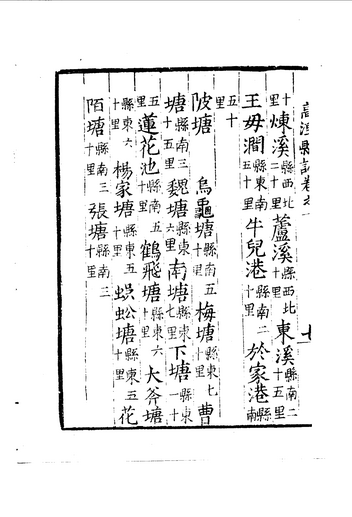 高淳縣志卷之一
七
十里煉溪縣西北二十里蘆溪縣西北十里東溪縣南二十五里
王毋澗縣東南五十里牛兒港縣南二十里於家港縣南
五十里
陂塘 烏龜塘縣南五十里梅塘縣東七十里曹
塘縣南三十五里魏塘縣東南六十里南塘縣東七里下塘縣南一十
五里蓮花池縣南五十里鶴飛塘縣東六十里大斧塘
縣東六十里楊家塘縣東五十里蜈蚣塘縣東五十里花
陌塘縣南三十里張塘縣南三十里